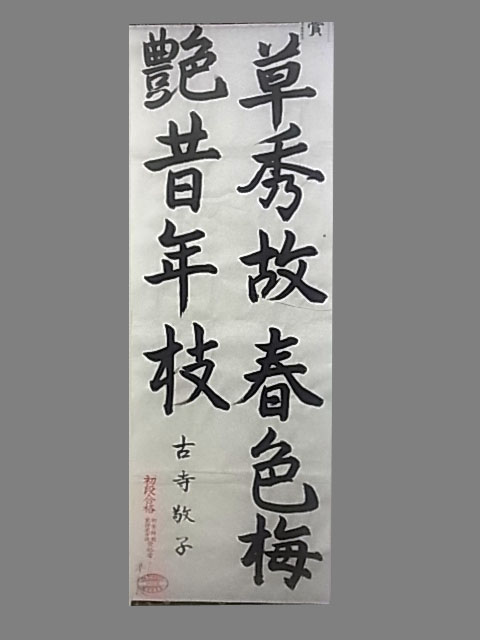 賞
草秀故春色梅
艶昔年枝
古寺敬子
初段合格